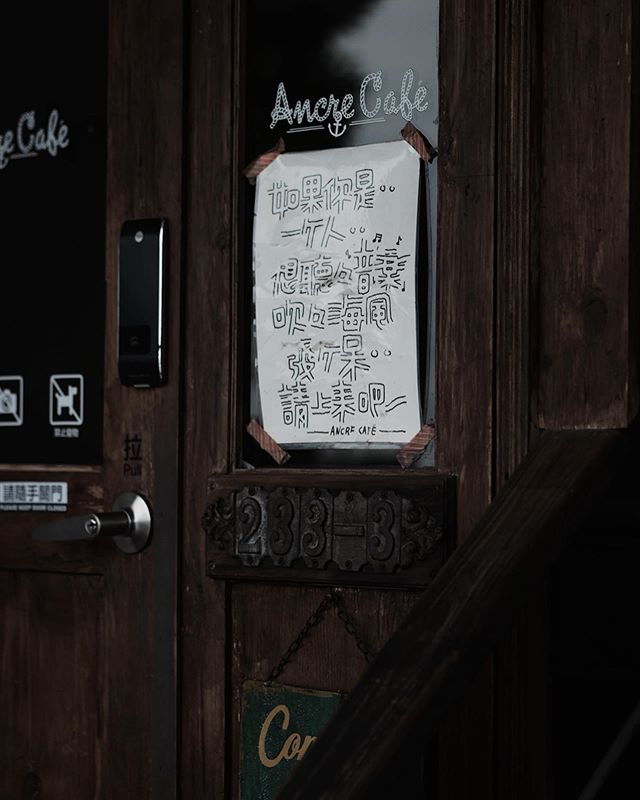 Ancre Café
re Café
如果你是..
一ケ人..
想聽々音樂
吹々海風
發ケ呆..
請上 吧
ANCRE CAFÉ
禁止寵物
拉
Pull
請隨手關門
PLEASE KEEP DOOR CLOSED
233-3
Co